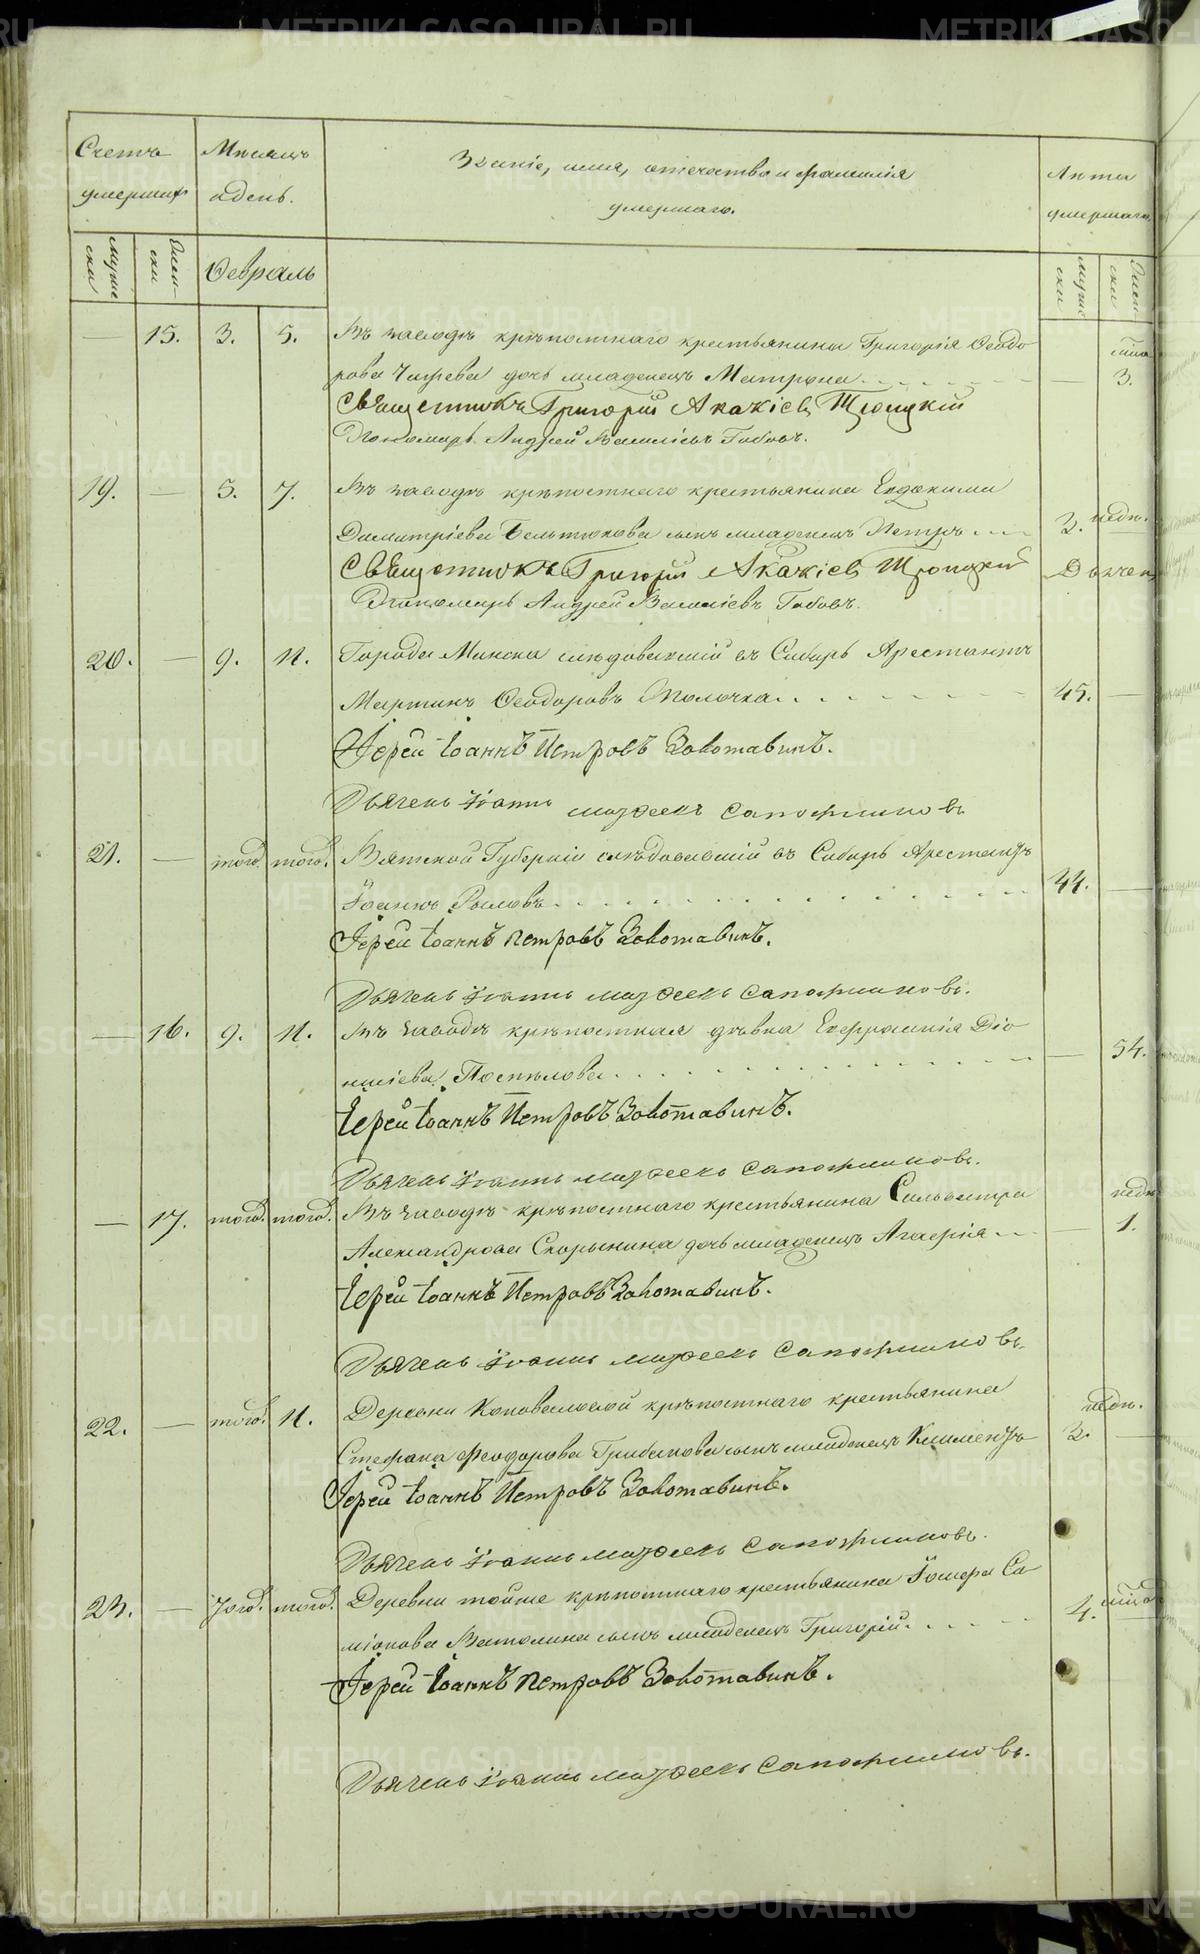 METRIKI.GASO-URAL.RU
Счетъ умершихъ
Мѣсяцъ и день.
Званіе, имя, отечество и фамилія
умершаго.
Лѣта умершаго.
Мужески
Женски
Февраль
Мужески
Женски
— 15. 3. 5. Въ заводѣ крѣпостнаго крестьянина Григорія Ѳеодо
рова дочь младенецъ Матрона — 3.
Священникъ Григорій Акакіевъ Троицкій
Пономарь Андрей Василіевъ
19. — 5. 7. Въ заводѣ крѣпостнаго крестьянина Евдокима
Димитріева Бельтюкова сынъ младенецъ Петръ 2. недѣ.
Священникъ Григорій Акакіевъ Троицкій
Пономарь Андрей Василіевъ
20. — 9. 11. Города Минска слѣдовавшій въ Сибирь Арестантъ
Мартинъ Ѳеодоровъ 45. —
Іерей Іоаннъ Петровъ Золотавинъ.
Дьячекъ Іоаннъ Матѳеевъ Сапожниковъ
21. — того. того. Вятской Губерніи слѣдовавшій въ Сибирь Арестантъ
Іоаннъ 44. —
Іерей Іоаннъ Петровъ Золотавинъ.
Дьячекъ Іоаннъ Матѳеевъ Сапожниковъ.
— 16. 9. 11. Въ заводѣ крѣпостная дѣвка Евфросинія Діо
нисіева Поспѣлова — 54.
Іерей Іоаннъ Петровъ Золотавинъ.
Дьячекъ Іоаннъ Матѳеевъ Сапожниковъ.
— 17. того. того. Въ заводѣ крѣпостнаго крестьянина Сильвестра
Александрова Скорынина дочь младенецъ Агафія — недѣ. 1.
Іерей Іоаннъ Петровъ Золотавинъ.
Дьячекъ Іоаннъ Матѳеевъ Сапожниковъ.
22. — того. 11. Деревни Коноваловой крѣпостнаго крестьянина
Стефана Феодорова Грибанова сынъ младенецъ Климентъ 2. недѣ. —
Іерей Іоаннъ Петровъ Золотавинъ.
Дьячекъ Іоаннъ Матѳеевъ Сапожниковъ.
23. — того. того. Деревни тойже крѣпостнаго крестьянина Іосифа Си
міонова Ватолина сынъ младенецъ Григорій. 4.
Іерей Іоаннъ Петровъ Золотавинъ.
Дьячекъ Іоаннъ Матѳеевъ Сапожниковъ.